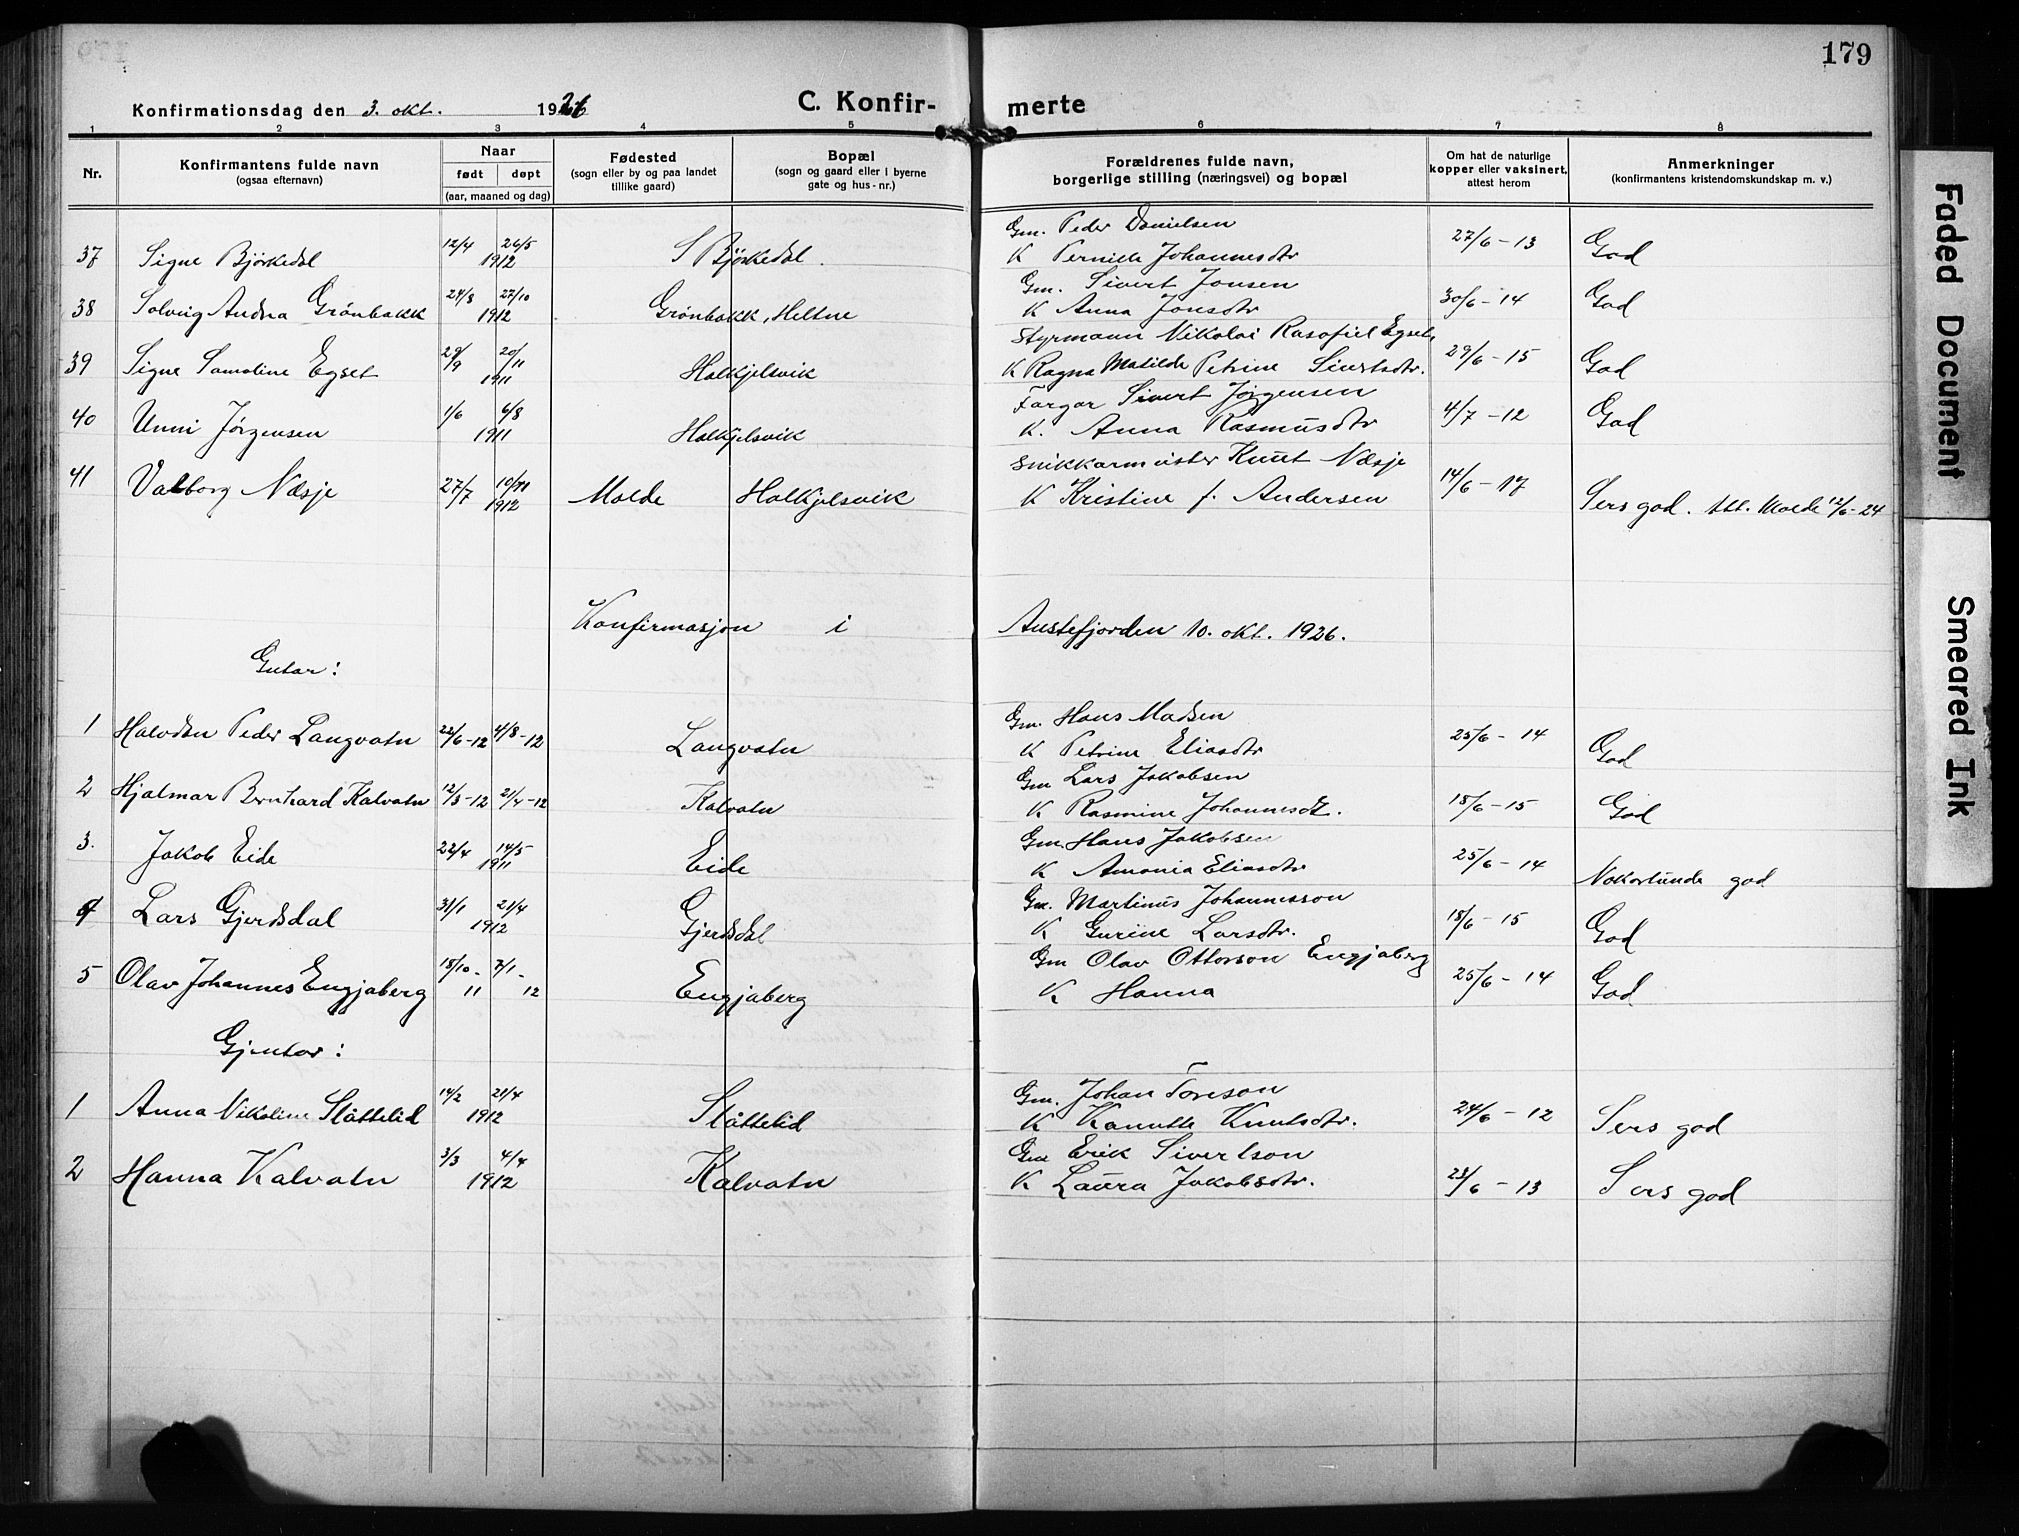 179
Konfirmationsdag den 3. okt. 1926
C. Konfirmerte
1 2 3 4 5 6 7 8
Nr.
Konfirmantens fulde navn
(ogsaa efternavn)
Naar
født døpt
(aar, maaned og dag)
Fødested
(sogn eller by og paa landet
tillike gaard)
Bopæl
(sogn og gaard eller i byerne
gate og hus-nr.)
Forældrenes fulde navn,
borgerlige stilling (næringsvei) og bopæl
Om hat de naturlige
kopper eller vaksinert,
attest herom
Anmerkninger
(konfirmantens kristendomskundskap m. v.)
Gm. Peder Danielsen
37 Signe Bjørkedal 12/4 26/5 1912 S Bjørkedal. K Pernille Johannesdtr 27/6-13 God
Gm. Sivert Jonsen
38 Solveig Andrea Grönbakk 24/8 27/10 1912 Grönbakk, Heltne K Anna Jonsdtr 30/6-14 God
Styrmann Nikolai Rasofiel Egset,
39 Signe Samoline Egset 29/9 20/11 1911 Halkjelsvik K Ragna Matilde Petrine Sivertsdtr. 29/6-15 God
Fargar Sivert Jørgensen
40 Unni Jørgensen 1/6 6/8 1911 Halkjelsvik K. Anna Rasmusdtr 4/7-12 God
Snikkarmeister Knut Næsje
41 Valborg Næsje 27/7 10/11 1912 Molde Halkjelsvik K Kristine f. Andersen 14/6-17 Sers god. Att. Molde 12/6-24
Konfirmasjon i Austefjorden 10. okt. 1926.
Gutar:
Gm. Hans Madsen
1 Halvdan Peder Langvatn 22/6-12 4/8-12 Langvatn K Petrine Eliasdtr 25/6-14 God
Gm Lars Jakobsen
2 Hjalmar Bernhard Kalvatn 12/3-12 21/4-12 Kalvatn K Rasmine Johannesdt. 18/6-15 God
Gm. Hans Jakobsen
3. Jakob Eide 22/4 14/5 1911 Eide K Amonia Eliasdtr 25/6-14 Nokorlunde god
Gm. Martinus Johannesson
4 Lars Gjerdsdal 31/1 21/4 1912 Gjerdsdal K Gurine Larsdtr. 18/6-15 God
Gm Olav Ottorson Engjaberg
5 Olav Johannes Engjaberg 15/10-11 7/1-12 Engjaberg K Hanna 25/6-14 God
Gjentor:
Gm. Johan Toreson
1 Anna Nikoline Slåttelid 14/2 21/4 1912 Slåttelid K Kanutte Knutsdtr. 24/6-12 Sers god
Gm Erik Sivertson
2 Hanna Kalvatn 3/3 4/4 1912 Kalvatn K Laura Jakobsdtr. 23/6-13 Sers god
Faded Document
Smeared Ink